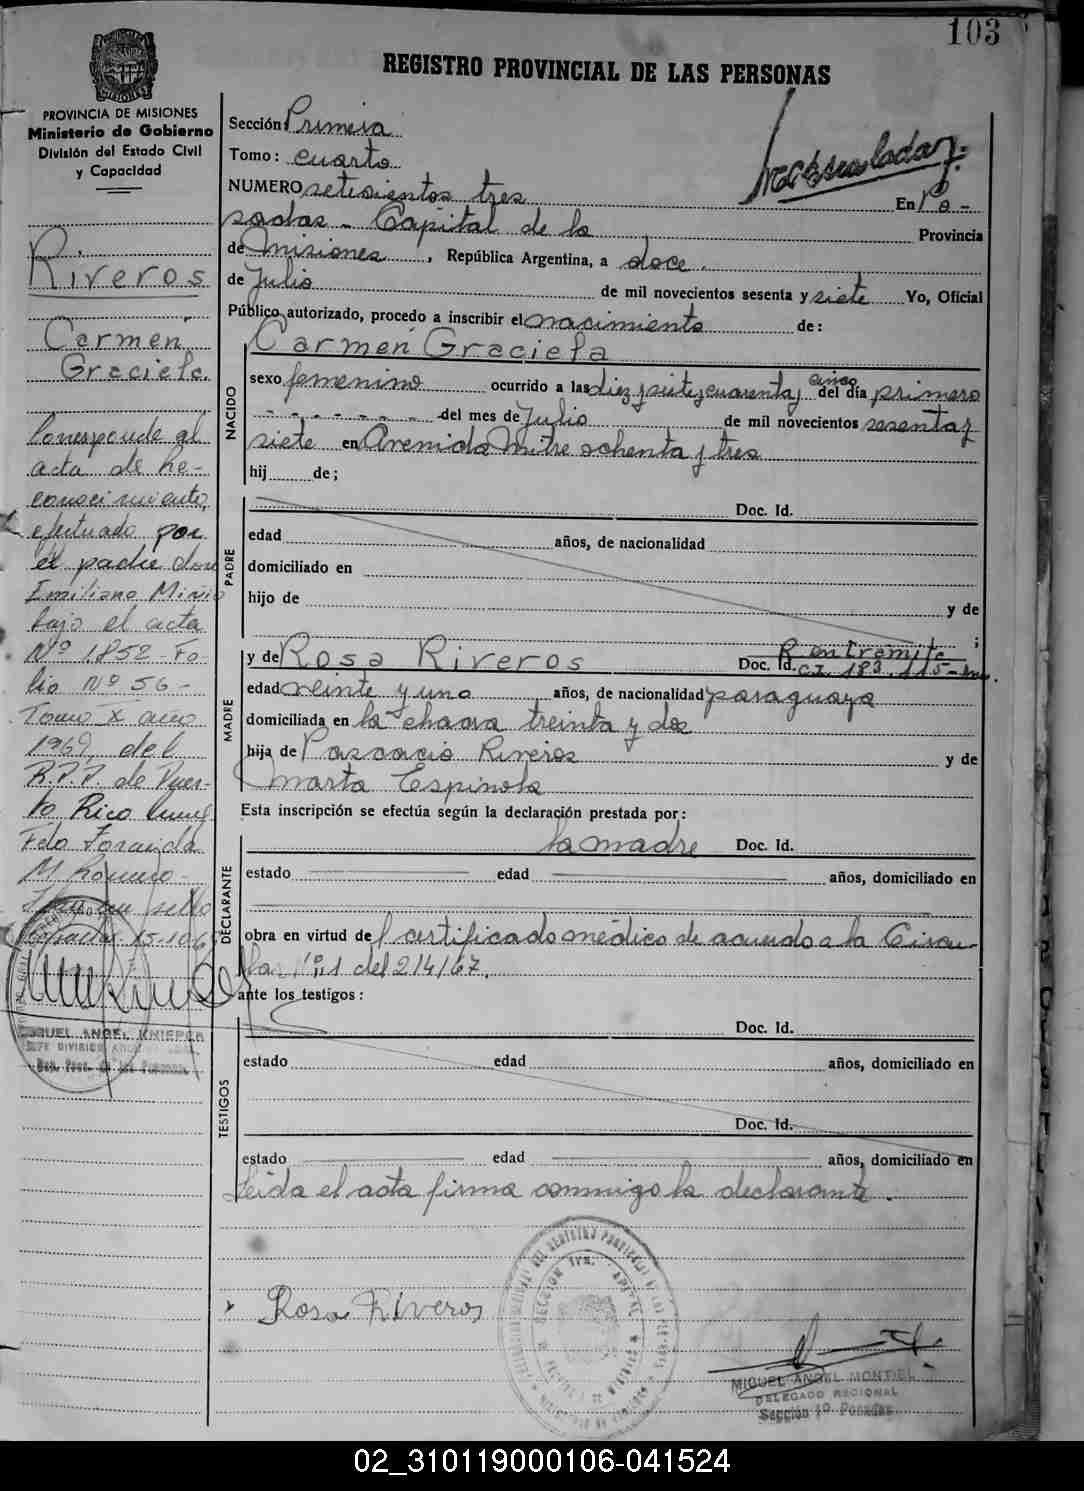 103
REGISTRO PROVINCIAL DE LAS PERSONAS
PROVINCIA DE MISIONES
Ministerio de Gobierno
División del Estado Civil
y Capacidad
Riveros
Carmen
Graciela.
Corresponde al
acta de Re-
conocimiento,
efectuado por
el padre don
Emiliano
bajo el acta
Nº 1852 Fo
lio Nº 56 -
Tomo X año
1969 del
R.P.P. de Puer-
to Rico
Fdo
M. Romero -
sello
Posadas 15-10-6
MIGUEL ANGEL KNIEPER
JEFE DIVISION
Reg. Prov. de las Personas
Sección: Primera
Tomo: cuarto
NUMERO setecientos tres
En Po-
sadas - Capital de la Provincia
de Misiones, República Argentina, a doce.
de Julio de mil novecientos sesenta y siete Yo, Oficial
Público autorizado, procedo a inscribir el nacimiento de:
Carmen Graciela
NACIDO
sexo femenino ocurrido a las diez y siete y cuarenta y cinco del día primero
- - - - - - - del mes de Julio de mil novecientos sesenta y
siete en Avenida Mitre ochenta y tres
hij de;
PADRE
Doc. Id.
edad años, de nacionalidad
domiciliado en
hijo de y de
;
MADRE
y de Rosa Riveros Doc. Id. En trámite
C.I. 183.115-
edad veinte y uno años, de nacionalidad paraguaya
domiciliada en la chacra treinta y dos
hija de Pascacio Riveros y de
Marta Espinola
Esta inscripción se efectúa según la declaración prestada por:
DECLARANTE
la madre Doc. Id.
estado edad años, domiciliado en
obra en virtud del certificado médico de acuerdo a la Circu-
lar Nº 1 del 2/4/67.
ante los testigos:
TESTIGOS
Doc. Id.
estado edad años, domiciliado en
Doc. Id.
estado edad años, domiciliado en
Leida el acta firma conmigo la declarante.
Rosa Riveros
MIGUEL ANGEL MONTIEL
DELEGADO REGIONAL
Sección 1º Posadas
02_310119000106-041524